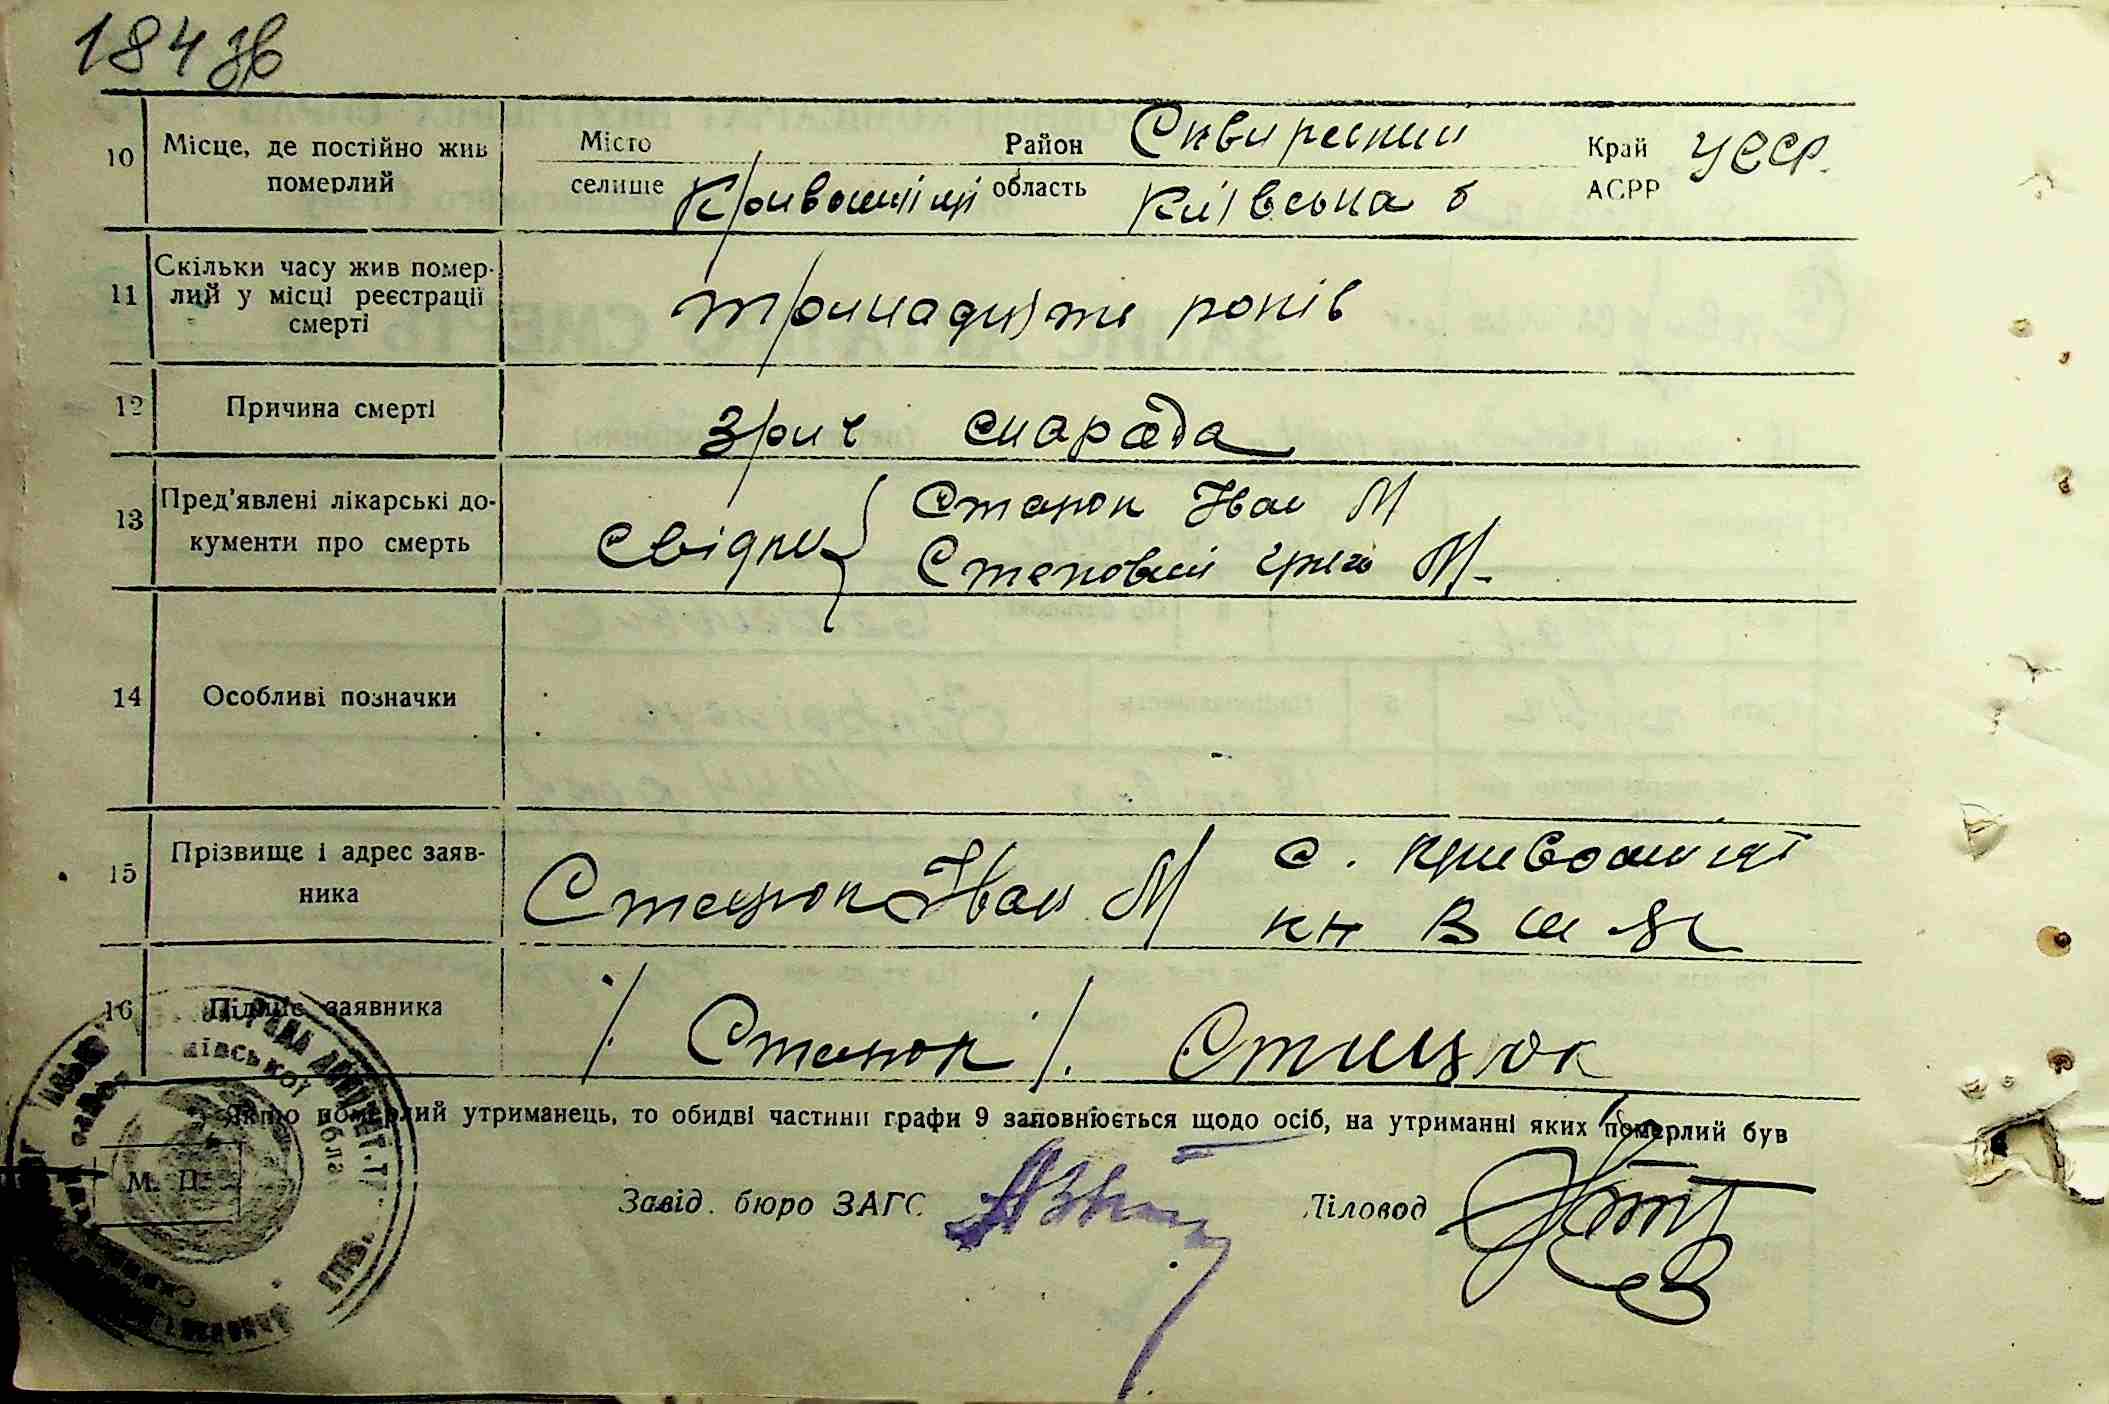 184 зв
10 Місце, де постійно жив померлий Місто селище Кривошиїнці Район Сквирський область Київська б Край АСРР УССР.
11 Скільки часу жив помер-
лий у місці реєстрації
смерті тринадцять років
12 Причина смерті зрив снаряда
13 Пред'явлені лікарські до-
кументи про смерть свідки Стацюк Іван М
Степовий григ М.
14 Особливі позначки
15 Прізвище і адрес заяв-
ника Стацюк Іван М с. Кривошиїнці
16 Підпис заявника / Стацюк /. Стацюк
Якщо померлий утриманець, то обидві частини графи 9 заповнюється щодо осіб, на утриманні яких померлий був
М. П.
Завід. бюро ЗАГС Діловод